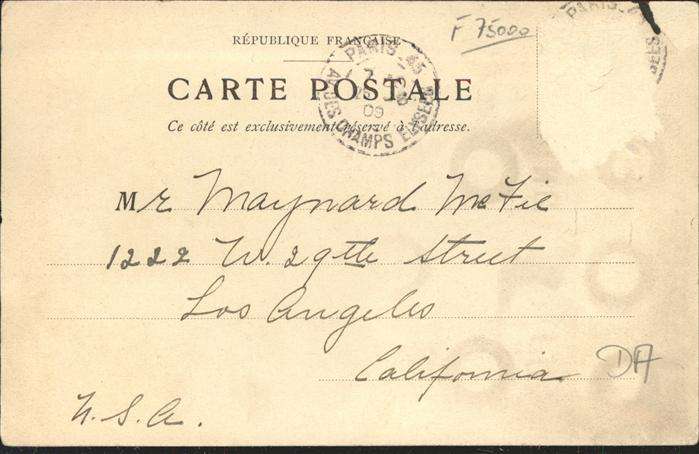 F 75000
RÉPUBLIQUE FRANÇAISE
PARIS 45
09
CHAMPS
CARTE POSTALE
Ce côté est exclusivement réservé à l'adresse.
Mr Maynard McFie
1222 W. 29th Street
Los Angeles
California
DA
U.S.A.